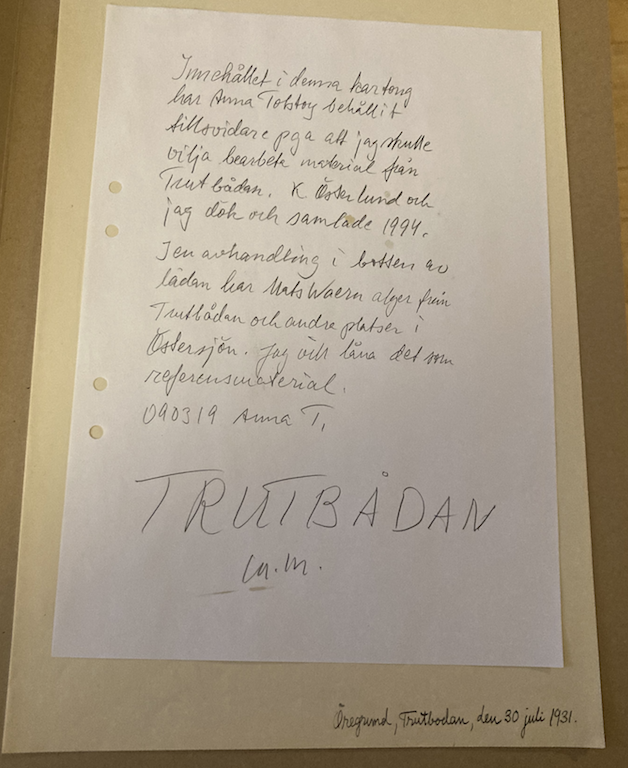 Innehållet i denna kartong
har Anna Tolstoy behållit
tillsvidare pga att jag skulle
vilja bearbeta material från
Trutbådan. K Österlund och
jag dök och samlade 1994.
I en avhandling i botten av
lådan har Mats Waern alger från
Trutbådan och andra platser i
Östersjön. Jag vill låna det som
referensmaterial.
090319 Anna T.
TRUTBÅDAN
m.m.
Öregrund, Trutbodan, den 30 juli 1931.